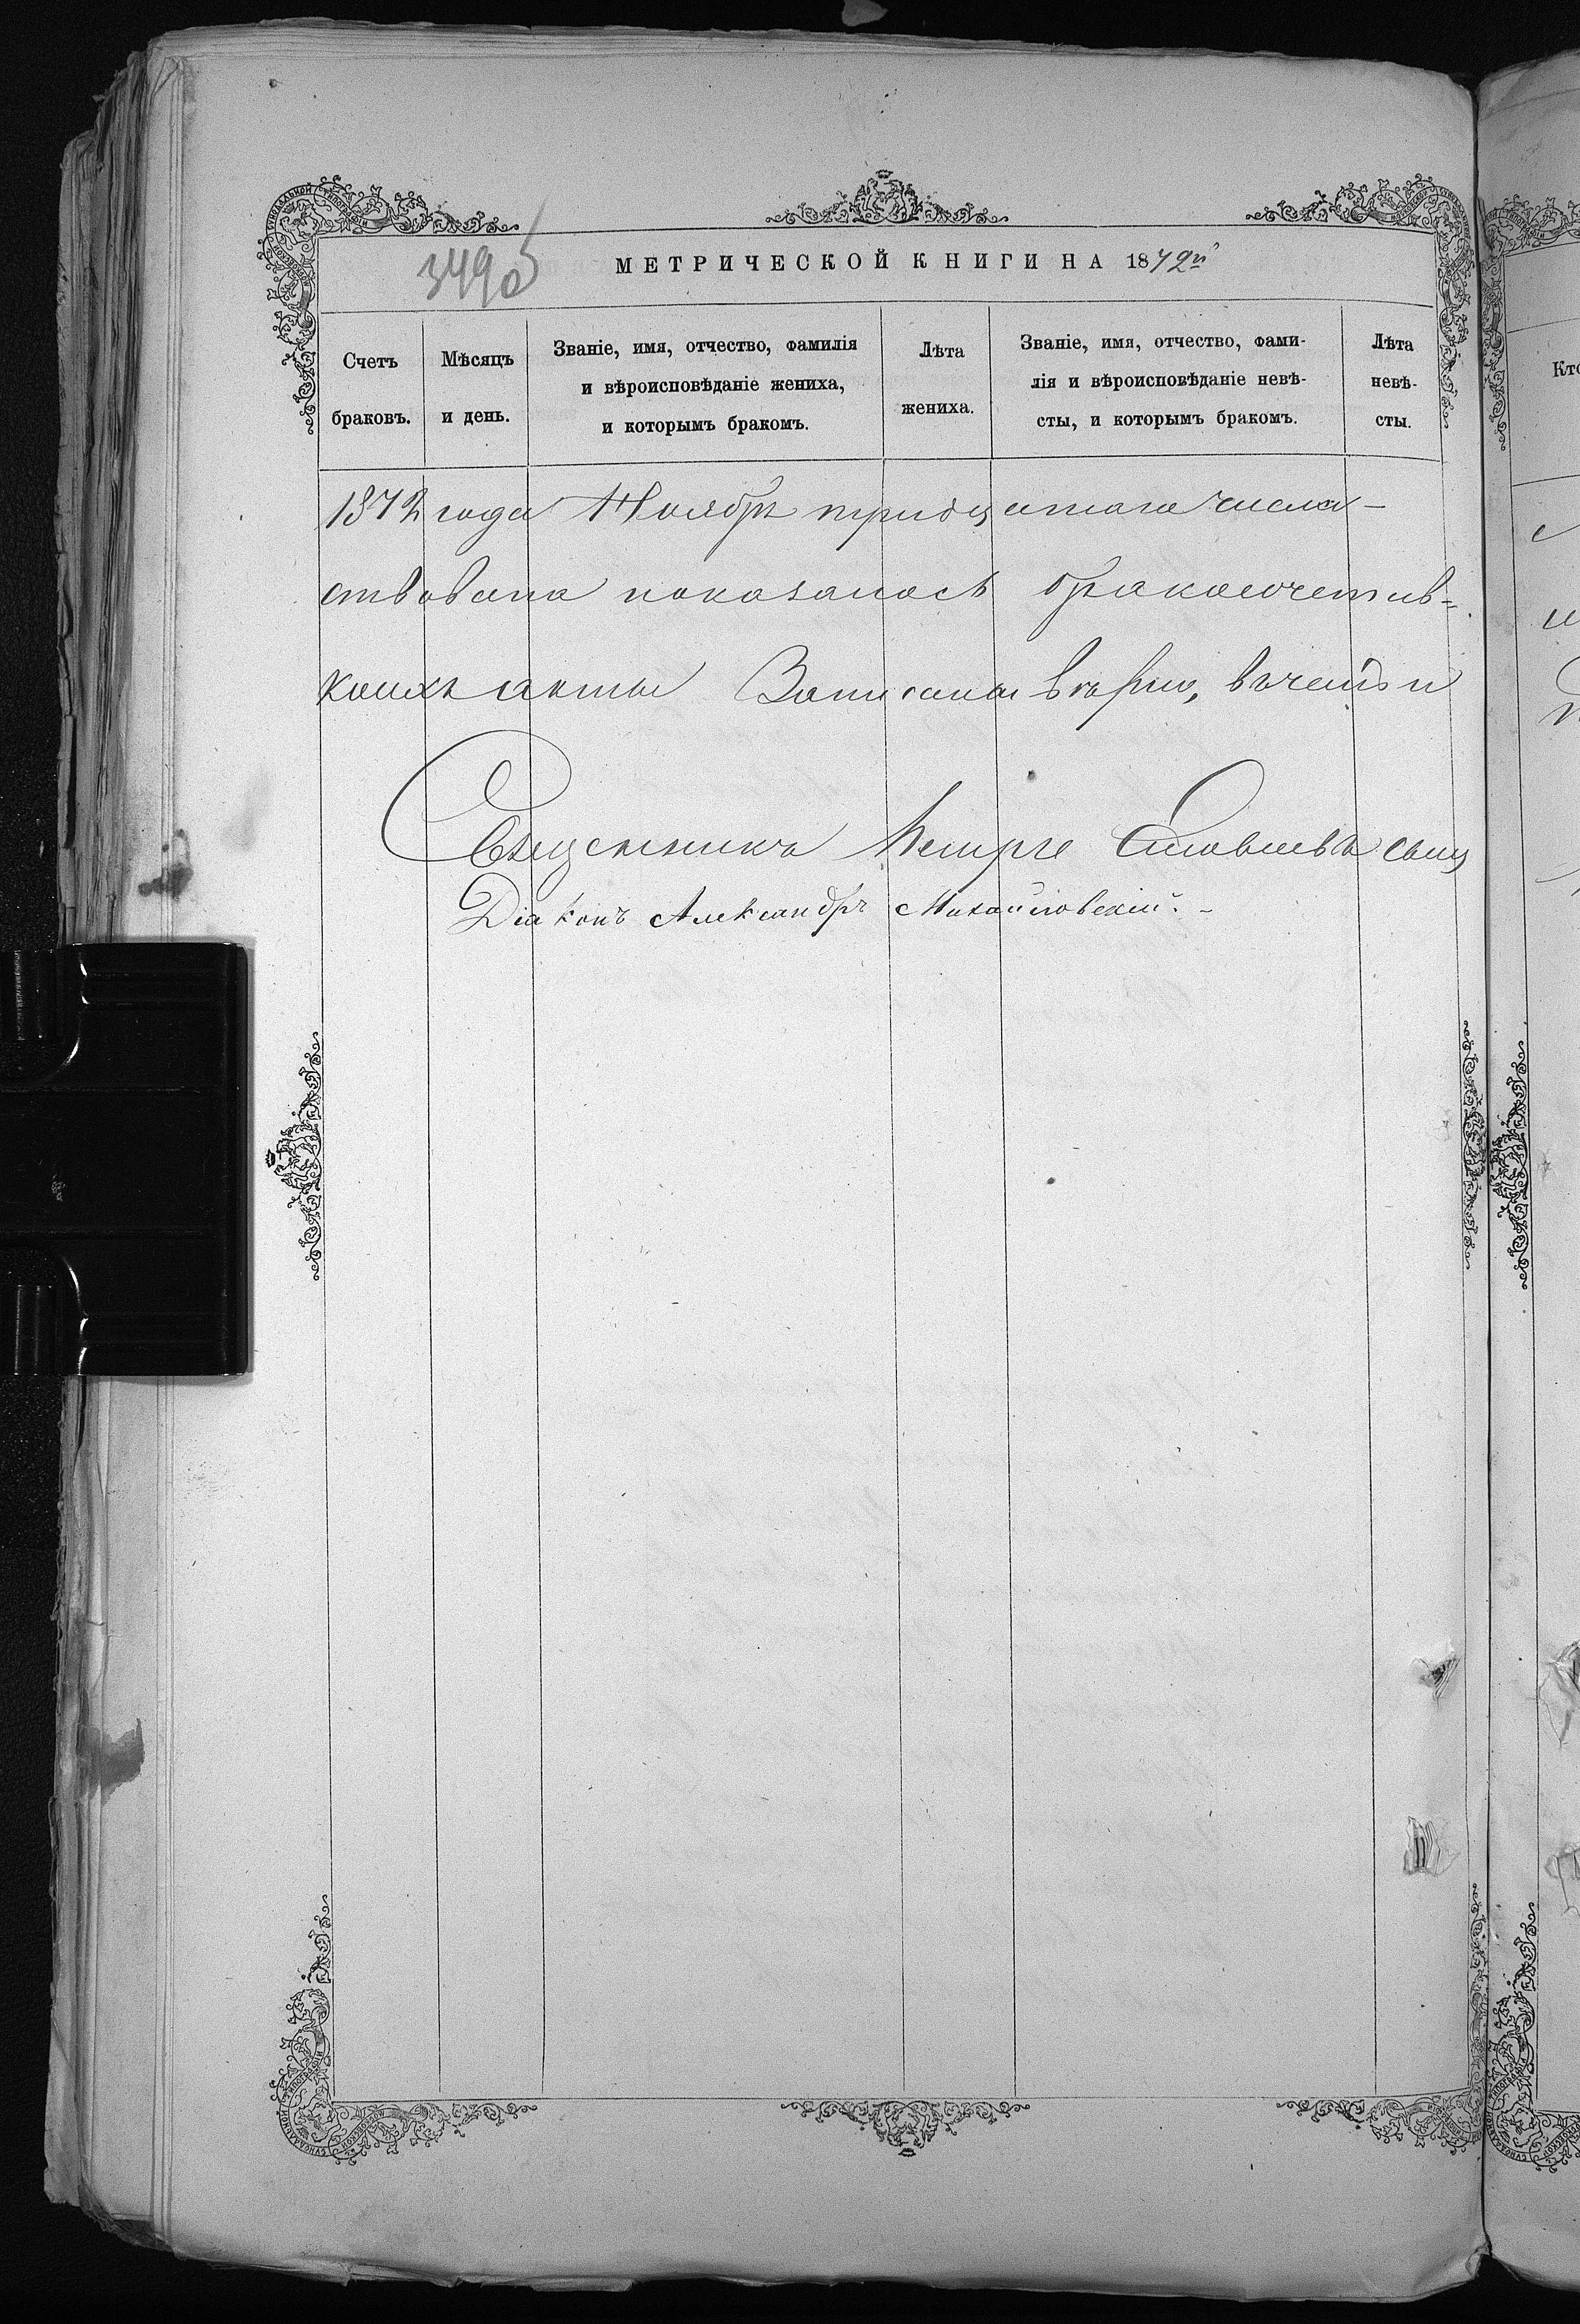 349 об
МЕТРИЧЕСКОЙ КНИГИ НА 1872й
Счетъ браковъ.
Мѣсяцъ и день.
Званіе, имя, отчество, фамилія
и вѣроисповѣданіе жениха,
и которымъ бракомъ.
Лѣта жениха.
Званіе, имя, отчество, фами-
лія и вѣроисповѣданіе невѣ-
сты, и которымъ бракомъ.
Лѣта невѣ-
сты.
1872 года Ноября тридцатаго числа -
ствована показалось
коихъ акты Записаны вѣрно,
Священникъ Петръ
Діаконъ Александръ Михайловскій. -